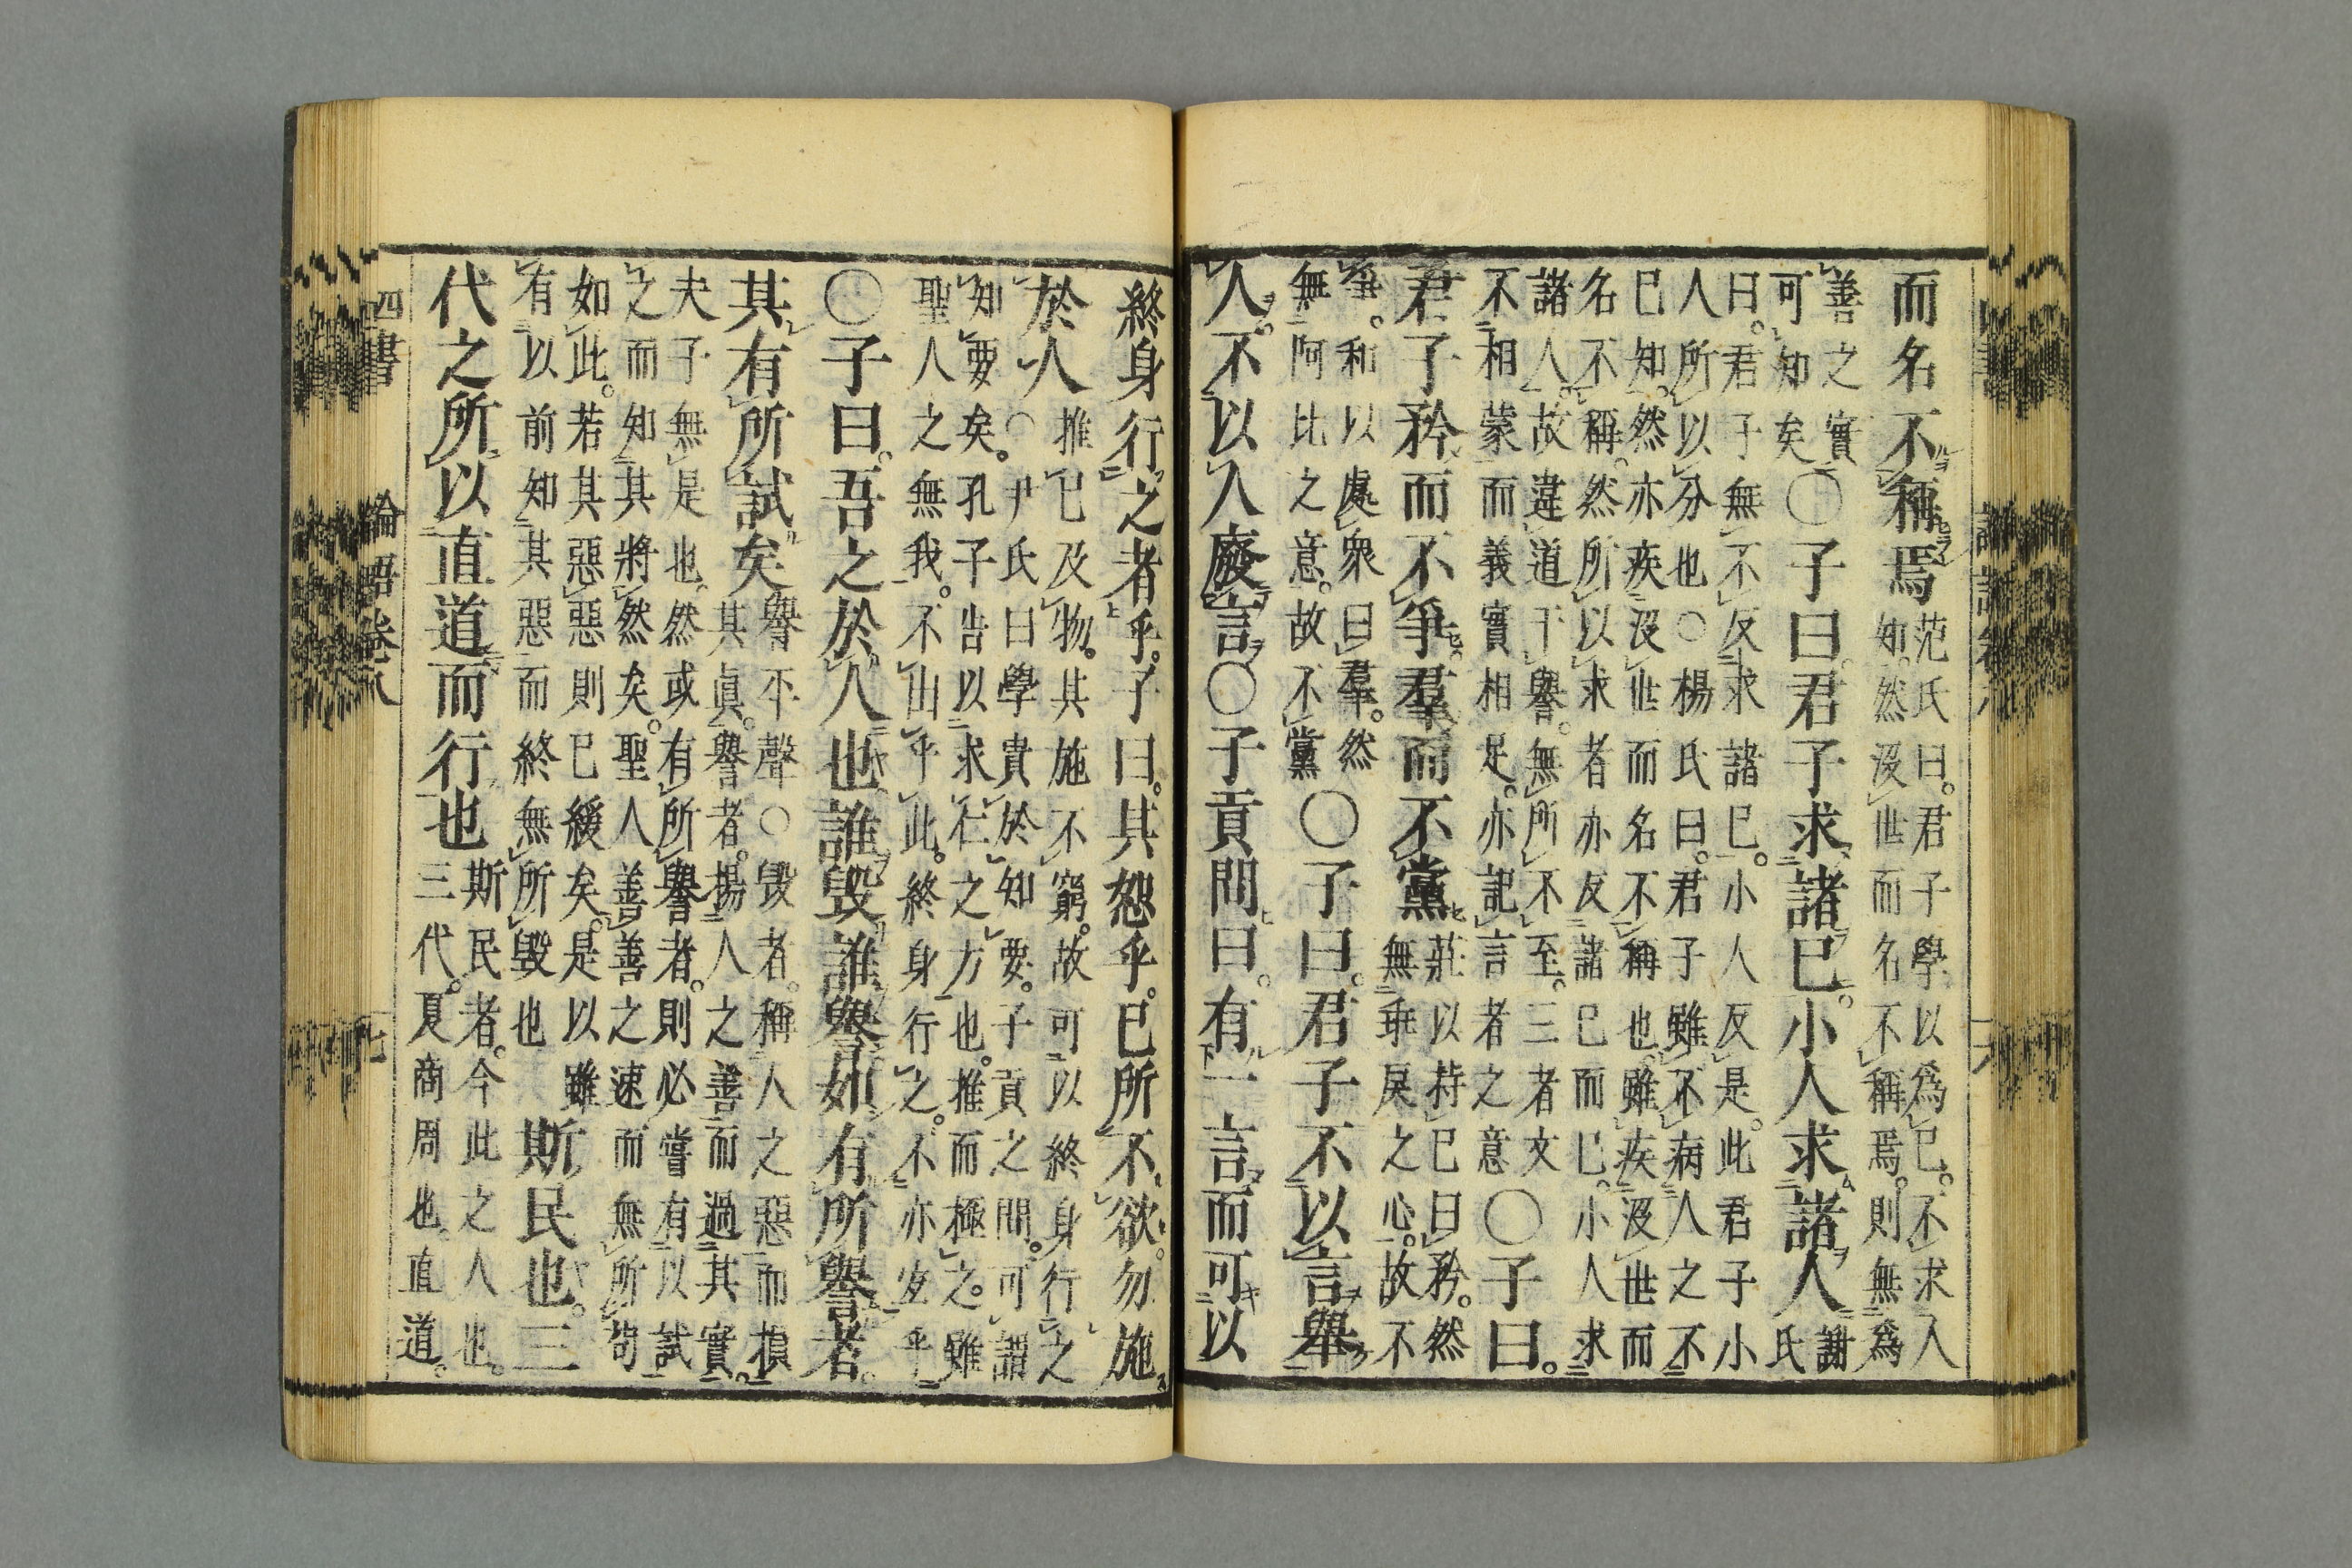 而名不稱焉
范氏曰。君子學以爲已。不求人
知。然沒世而名不稱焉。則無爲
善之實
可知矣
○子曰。君子求諸已。小人求諸人
謝
氏
曰。君子無不反求諸已。小人反是。此君子小
人所以分也○楊氏曰。君子雖不病人之不
已知。然亦疾沒世而名不稱也。雖疾沒世而
名不稱。然所以求者亦反諸已而已。小人求
諸人。故違道干譽。無所不至。三者文
不相蒙而義實相足。亦記言者之意
○子曰。
君子矜而不爭。羣而不黨
莊以持已曰矜。然
無乖戾之心。故不
爭。和以處衆曰羣。然
無阿比之意。故不黨
○子曰。君子不以言舉
人。不以人廢言○子貢問曰。有一言而可以
終身行之者乎。子曰。其恕乎。已所不欲。勿施
於人
推已及物。其施不窮。故可以終身行之
○尹氏曰學貴於知要。子貢之問。可謂
知要矣。孔子告以求仁之方也。推而極之。雖
聖人之無我。不出乎此。終身行之。不亦宜乎
○子曰。吾之於人也。誰毀誰譽。如有所譽者。
其有所試矣
譽平聲○毀者。稱人之惡而損
其眞。譽者。揚人之善而過其實。
夫子無是也。然或有所譽者。則必嘗有以試
之而知其將然矣。聖人善善之速而無所苟
如此。若其惡惡則已緩矣。是以雖
有以前知其惡而終無所毀也
斯民也。三
代之所以直道而行也
斯民者。今此之人也。
三代。夏商周也。直道。
四書 論語卷八 七